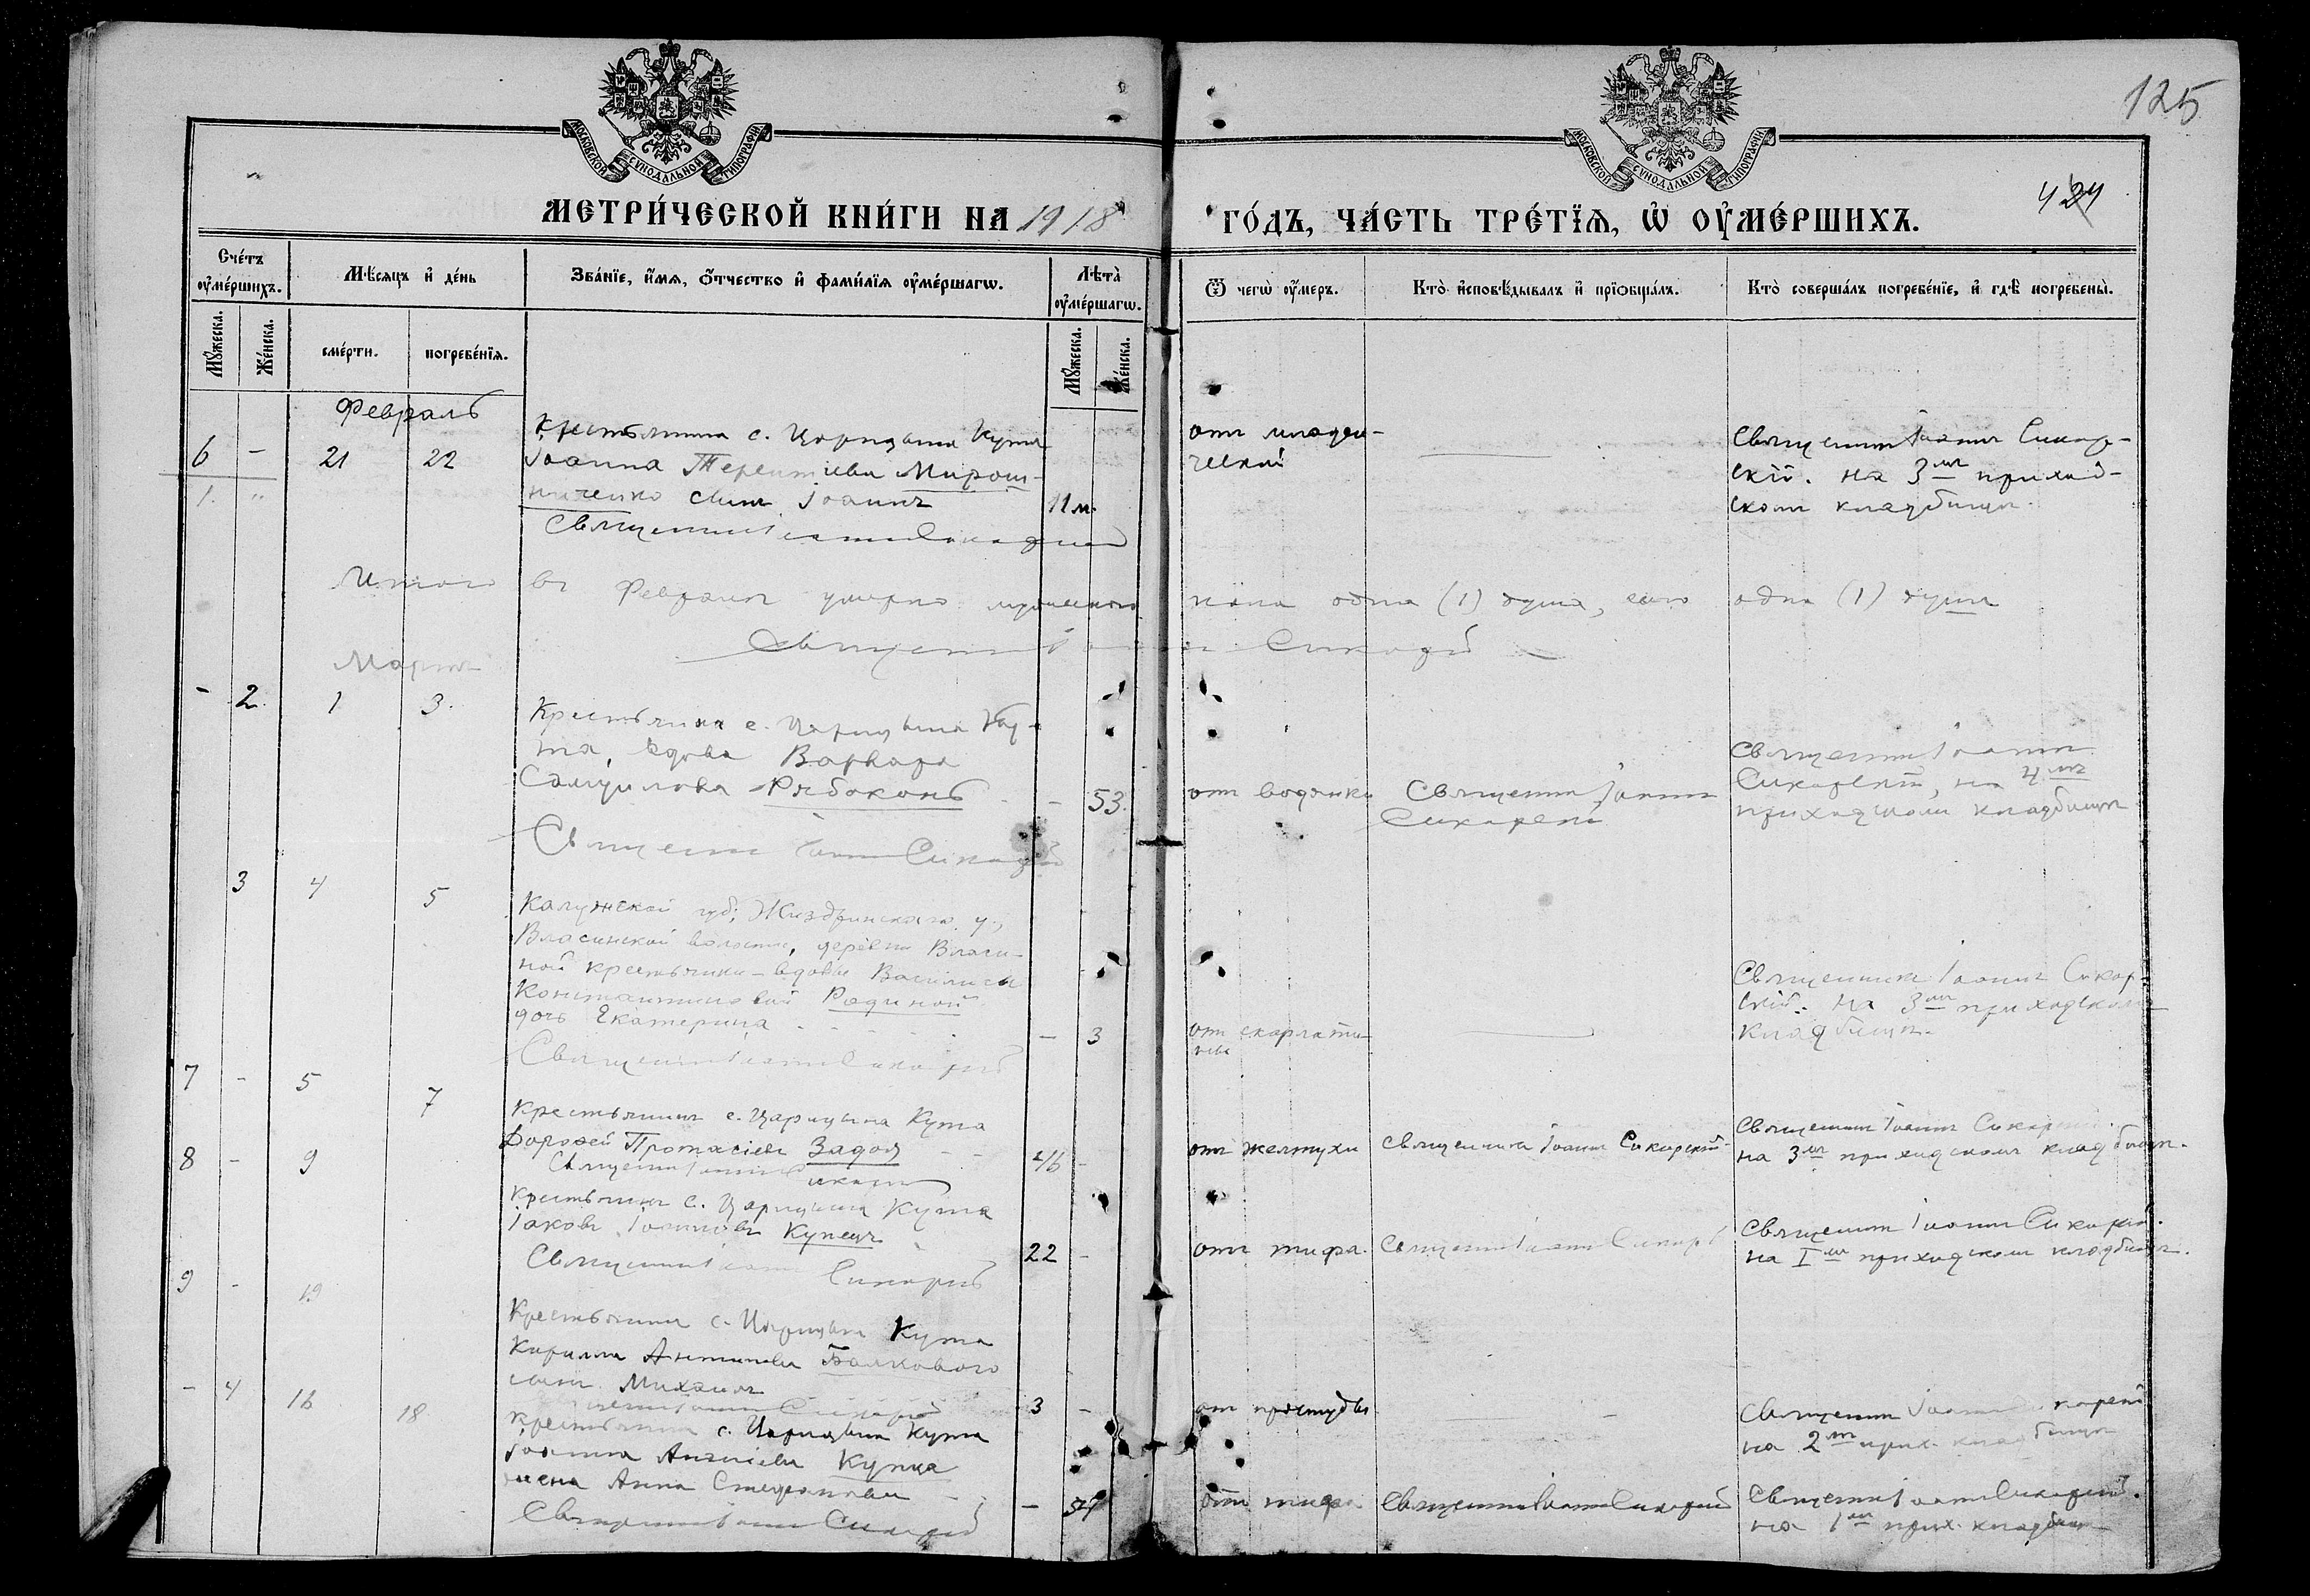 125
МОСКОВСКОЙ СУНОДАЛЬНОЙ ТИПОГРАФІИ
МОСКОВСКОЙ СУНОДАЛЬНОЙ ТИПОГРАФІИ
424
МЕТРИ́ЧЕСКОЙ КНИ́ГИ НА 1918 ГО́ДЪ, ЧА́СТЬ ТРЕ́ТЇѦ, Ѡ҆ ОУ҆МЕ́РШИХЪ.
Сче́тъ оу҆ме́ршихъ.
Мꙋ́жеска.
Же́нска.
Мѣ́сяцъ и҆ де́нь
сме́рти.
погребе́нїѧ.
Зва́нїе, и҆́мѧ, ѻ҆́тчество и҆ фами́лїѧ оу҆ме́ршагѡ.
Лѣ́та оу҆ме́ршагѡ.
Мꙋ́жеска.
Же́нска.
Ѿ чегѡ̀ оу҆́меръ.
Кто̀ и҆сповѣ́дывалъ и҆ прїѡбща́лъ.
Кто̀ соверша́лъ погребе́нїе, и҆ гдѣ̀ погребены̀.
Февраль
6 - 21 22
1. "
Крестьянина с. Царицына Кута
Іоанна Терентіева Мирош-
ниченко сынъ Іоаннъ 11 м.
Священникъ Іоаннъ Сикорскій
отъ младен-
ческой
Священникъ Іоаннъ Сикор-
скій. на 3мъ приход-
скомъ кладбищѣ
Итого въ Февралѣ умерло мужескаго пола одна (1) душа, всего одна (1) душа
Священникъ Іоаннъ Сикорскій
Мартъ
- 2. 1 3.
Крестьянка с. Царицына Ку-
та, вдова Варвара
Самуилова Рябоконь - 53.
Священникъ Іоаннъ Сикорскій
отъ водянки
Священникъ Іоаннъ
Сикорскій
Священникъ Іоаннъ
Сикорскій, на 4мъ
приходскомъ кладбищѣ
3 4 5
Калужской губ., Жиздринскаго у.,
Власинской волости, деревни Власи-
ной крестьянки-вдовы Василисы
Константиновой Родиной
дочь Екатерина - 3
Священникъ Іоаннъ Сикорскій
отъ скарлати-
ны
Священникъ Іоаннъ Сикор-
скій. на 3мъ приходскомъ
кладбищѣ.
7 - 5 7
Крестьянинъ с. Царицына Кута
Дорофей Протасіевъ Задоя 46 -
Священникъ Іоаннъ Сикорскій
отъ желтухи
Священникъ Іоаннъ Сикорскій
Священникъ Іоаннъ Сикорскій.
на 3мъ приходскомъ кладбищѣ.
8 - 9
Крестьянинъ с. Царицына Кута
Іаковъ Іоанновъ Купецъ 22 -
Священникъ Іоаннъ Сикорскій
отъ тифа.
Священникъ Іоаннъ Сикорскій
Священникъ Іоаннъ Сикорскій.
на Iмъ приходскомъ кладбищѣ.
9 - 13
Крестьянина с. Царицына Кута
Кирилла Антипова Балкового
сынъ Михаилъ 3 -
Священникъ Іоаннъ Сикорскій
отъ простуды
на 2мъ прих. кладбищѣ
- 4 16 18
крестьянина с. Царицына Кута
Іоанна Купца
жена Анна Стефанова - 54
Священникъ Іоаннъ Сикорскій
отъ тифа
Священникъ Іоаннъ Сикорскій
Священникъ Іоаннъ Сикорскій.
на 1мъ прих. кладбищѣ